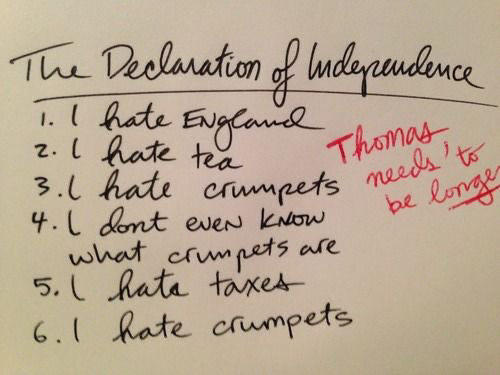 The Declaration of Independence
1. I hate England
2. I hate tea
3. I hate crumpets
4. I dont even know
what crumpets are
5. I hate taxes
6. I hate crumpets
Thomas,
needs to
be longer